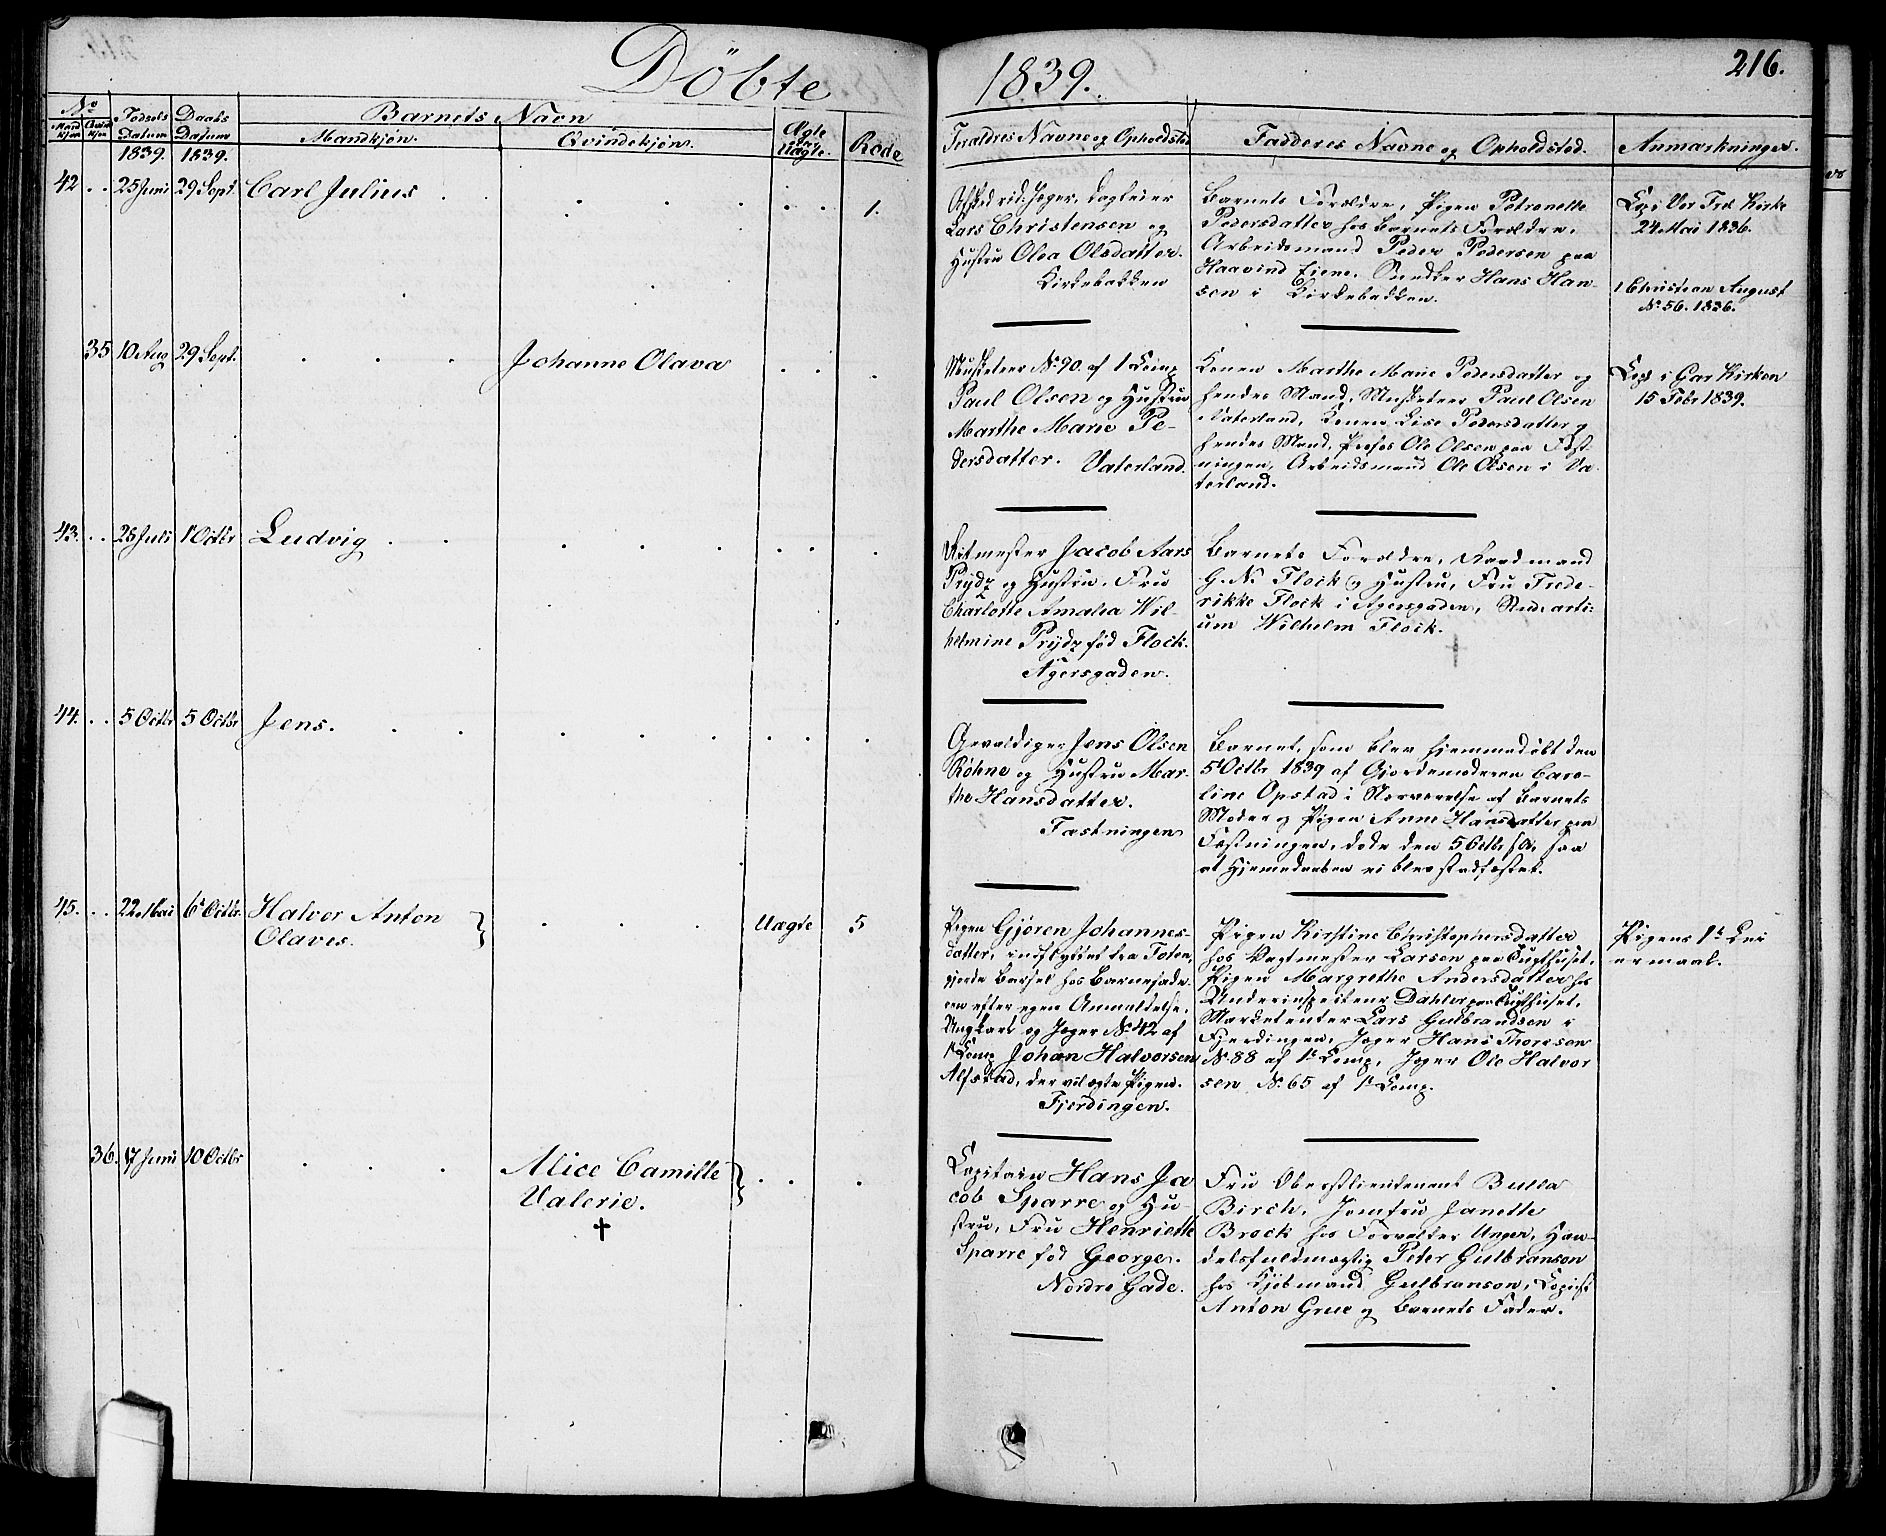 Döbte
1839.
216.
No
Mand kjøn
Qvind kjøn
Fødsels Datum
Daabs Datum
Barnets Navn
Mandkjøn.
Qvindekjøn.
Ægte
Uægte.
Rode
Foraldres Navne og Opholdsted
Fadderes Navne og Opholdsted.
Anmærkninger.
1839. 1839.
42 . . 25 Juni 29 Sept. Carl Julius
1.
Lars Christensen og
Hustru Olea Olsdatter.
Kirkebakken
Barnets Forældre, Pigen Petronelle
Pedersdatter hos Barnets Forældre,
Arbeidsmand Peder Pedersen paa
Haavind Eiene, Snedker Hans Han-
sen i Kirkebakken.
Cop. i Vor Frs. Kirke
24 Mai 1836.
1 Christian August
No 56. 1836.
35 10 Aug 29 Sept. Johanne Olava
Musketeer No 90. af 1 Comp
Paul Olsen og Hustru
Marthe Marie Pe-
dersdatter. Vaterland.
Konen Marthe Marie Pedersdatter og
hendes Mand, Musketeer Paul Olsen
Vaterland, Konen Lise Pedersdatter og
hendes Mand, Profos Ole Olsen paa Fæst-
ningen, Arbeidsmand Ole Olsen i Va-
terland.
Cop. i Gar. Kirken
15 Febr 1839.
43. . . 1 Octbr Ludvig
Ritmester Jacob Aars
Prydz og Hustru, Fru
Charlotte Amalia Wil-
helmine Prydz fød Flock.
Agersgaden.
Barnets Forældre, Raadmand
G. N. Flock og Hustru, Fru Frede-
rikke Flock i Agersgaden, Stud: arti:
um Wilhelm Flock.
44. . . 5 Octbr 5 Octbr Jens.
Gevaldiger Jens Olsen
Røhne og Hustru Mar-
the Hansdatter.
Fæstningen
Barnet, som blev hjemmedøbt den
5t Octbr 1839 af Gjordemoderen Caro-
line Opstad i Nærværelse af Barnets
Moder og Pigen Anne Hansdatter paa
Fæstningen, døde den 5 Octbr s. A., saa
at Hjemmedaaben ei blev stadfæstet.
45. . . 22 Mai 6t Octbr. Halvor Anton
Olaves.
Uægte 5
Pigen Gjøren Johannes-
datter, indflyttet fra Toten,
gjorde Barsel hos Barnefade-
ren efter egen Anmeldelse.
Ungkarl og Jæger No 42 af
1t Comp Johan Halvorsen
Alfstad, der vil ægte Pigen.
Fjerdingen.
Pigen Kirstine Christophersdatter
hos Vagtmester Larsen paa Tugthuset,
Pigen Margrethe Andersdatter hos
Underinspecteur Dahler paa Tugthuset,
Marketenter Lars Gulbrandsen i
Fjerdingen, Jæger Hans Thoresen
No. 88 af 1t Comp, Jæger Ole Halvor
sen No. 65 af 1t Comp.
Pigens 1t Lei
ermaal.
36. 17 Juni 10 Octbr Alice Camille
Valerie.
Capitain Hans Ja
cob Sparre og Hu-
stru, Fru Henriette
Sparre fød George.
Nordre Gade.
Fru Oberstlieutenant Bulla
Birch, Jomfru Janette
Brock hos Forvalter Unger, Han-
delsfuldmægtig Peter Gulbranson
hos Kjøbmand Gulbranson, Copist
Anton Grue og Barnets Fader.